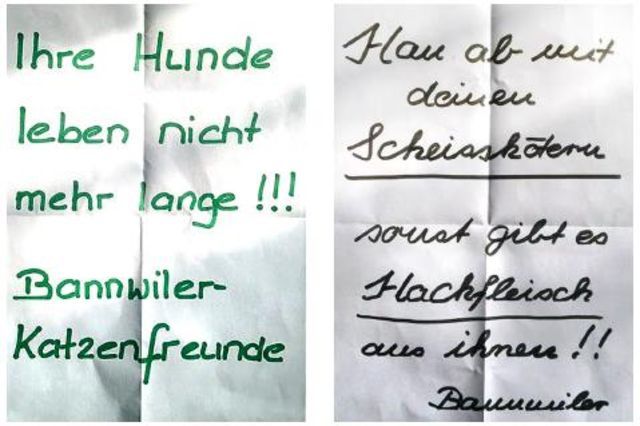 Ihre Hunde
leben nicht
mehr lange !!!
Bannwiler-
Katzenfreunde
Hau ab mit
deinen
Scheisskötern
sonst gibt es
Hackfleisch
aus ihnen !!
Bannwiler